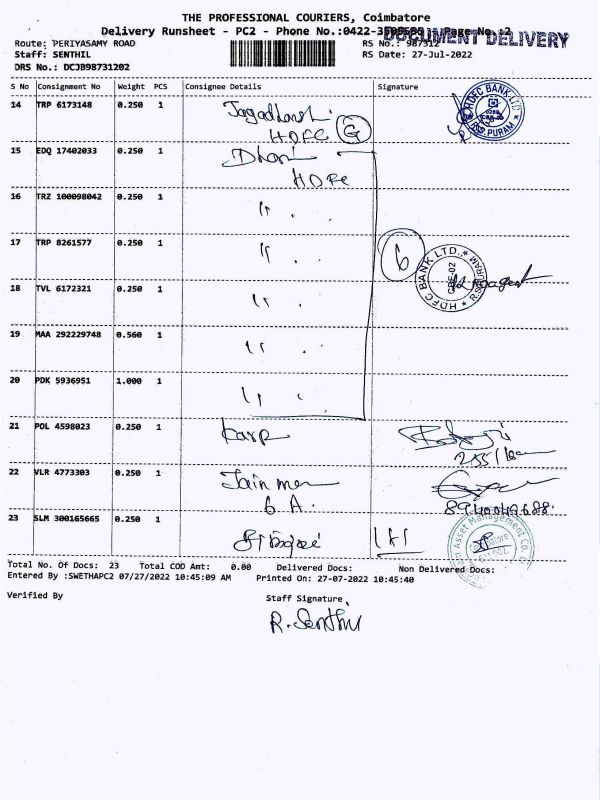 THE PROFESSIONAL COURIERS, Coimbatore
Delivery Runsheet - PC2 - Phone No.:0422- Page No.:2
DOCUMENT DELIVERY
Route: PERIYASAMY ROAD
RS No.: 987312
Staff: SENTHIL
RS Date: 27-Jul-2022
DRS No.: DCJB98731202
S No Consignment No Weight PCS Consignee Details Signature
14 TRP 6173148 0.250 1
HDFC G
HDFC BANK LTD
R.S. PURAM
15 EDQ 17402033 0.250 1
HDFC
16 TRZ 100098042 0.250 1 " "
17 TRP 8261577 0.250 1 " "
6
HDFC BANK LTD.
18 TVL 6172321 0.250 1 " "
19 MAA 292229748 0.560 1 " "
20 PDK 5936951 1.000 1 " "
21 POL 4598023 0.250 1 Karp
22 VLR 4773303 0.250 1 Jain
8940049688
23 SLM 300165665 0.250 1
Asset Management Co.
Total No. Of Docs: 23 Total COD Amt: 0.00 Delivered Docs: Non Delivered Docs:
Entered By :SWETHAPC2 07/27/2022 10:45:09 AM Printed On: 27-07-2022 10:45:40
Verified By Staff Signature
R. Senthil